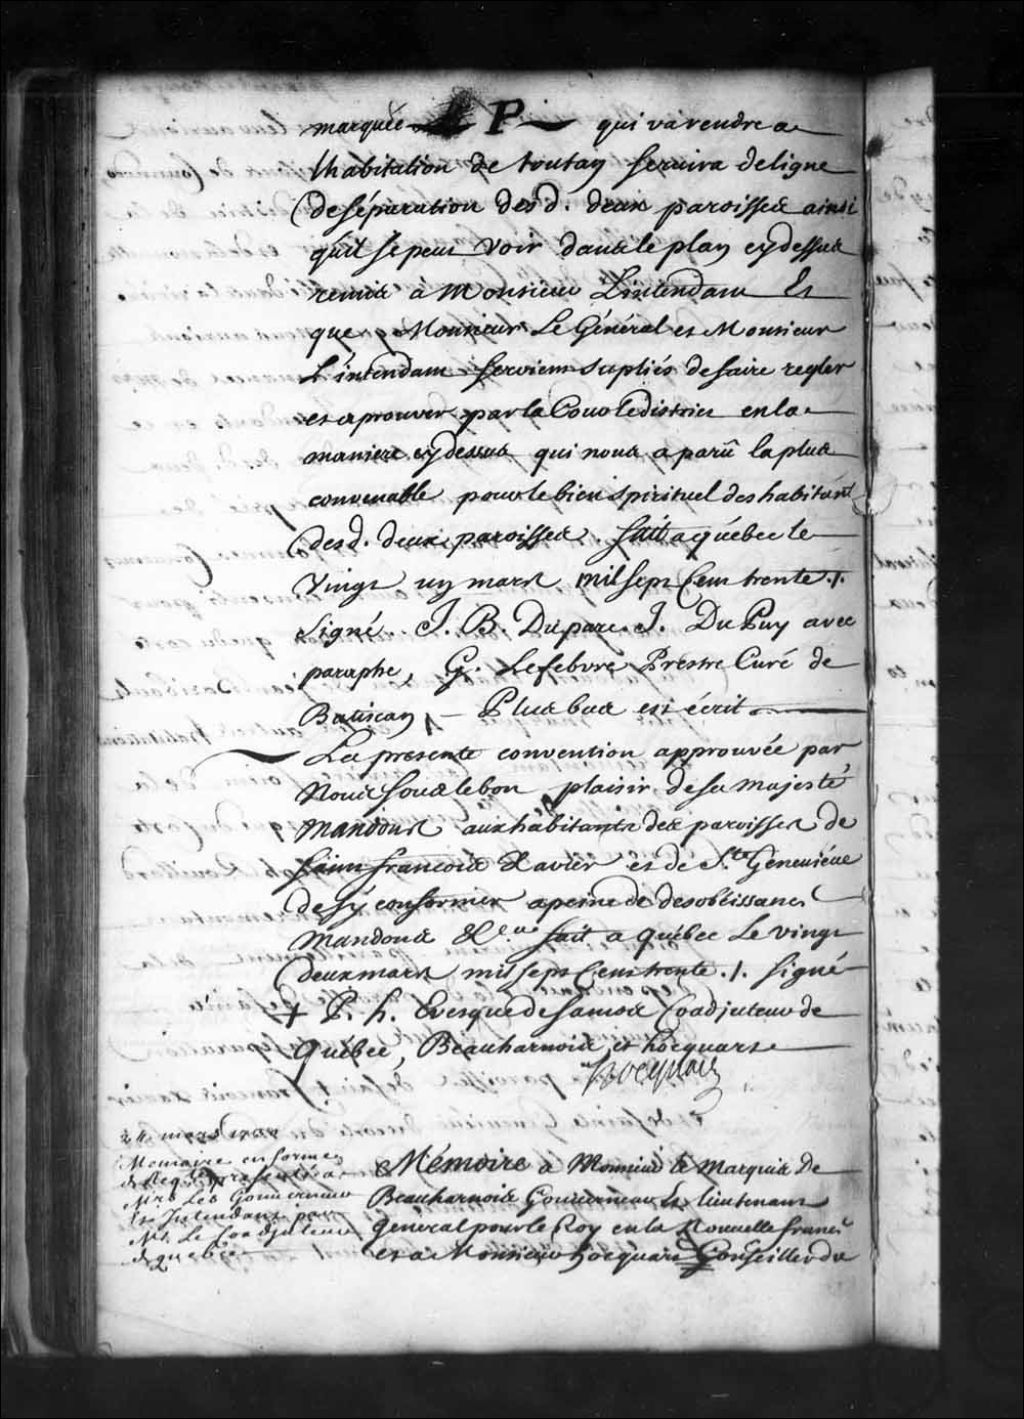 marquée P qui va rendre a
lhabitation de toutay servira de ligne
de séparation desd. deux paroisses ainsi
qu'il se peut voir dans le plan cy dessus
remis a Monsieur L'intendant Et
que Monsieur Le Général et Monsieur
L'intendant seroient supliés de faire regler
et aprouver par la Cour le district en la
maniere cy dessus qui nous a parû la plus
convenable pour le bien spirituel des habitants
desd. deux paroisses. fait a québec le
vingt un mars mil sept Cent trente ./.
signé. J. B. Duparc. J. Du Puy avec
paraphe, G. Lefebvre Prestre Curé de
Batiscan, — Plus bas est écrit
La presente convention approuvée par
Nous sous le bon plaisir de sa majesté
Mandons aux habitants des paroisses de
saint francois Xavier et de Ste Geneviéve
de sÿ conformer a peine de desobeissance
Mandons &c. fait a québec Le vingt
deux mars mil sept Cent trente ./. signé
+ P. h. Evesque de Samos Coadjuteur de
Québec, Beauharnois, et hocquart
hocquart
Memoire en forme
de Requete presenté a
Mrs Les Gouverneur
Et Intendant par
Mr. Le Coadjuteur
de quebec
Mémoire a Monsieur le Marquis de
Beauharnois Gouverneur Et lieutenant
General pour le Roy en la Nouvelle france
et a Monsieur hocquart Conseiller du